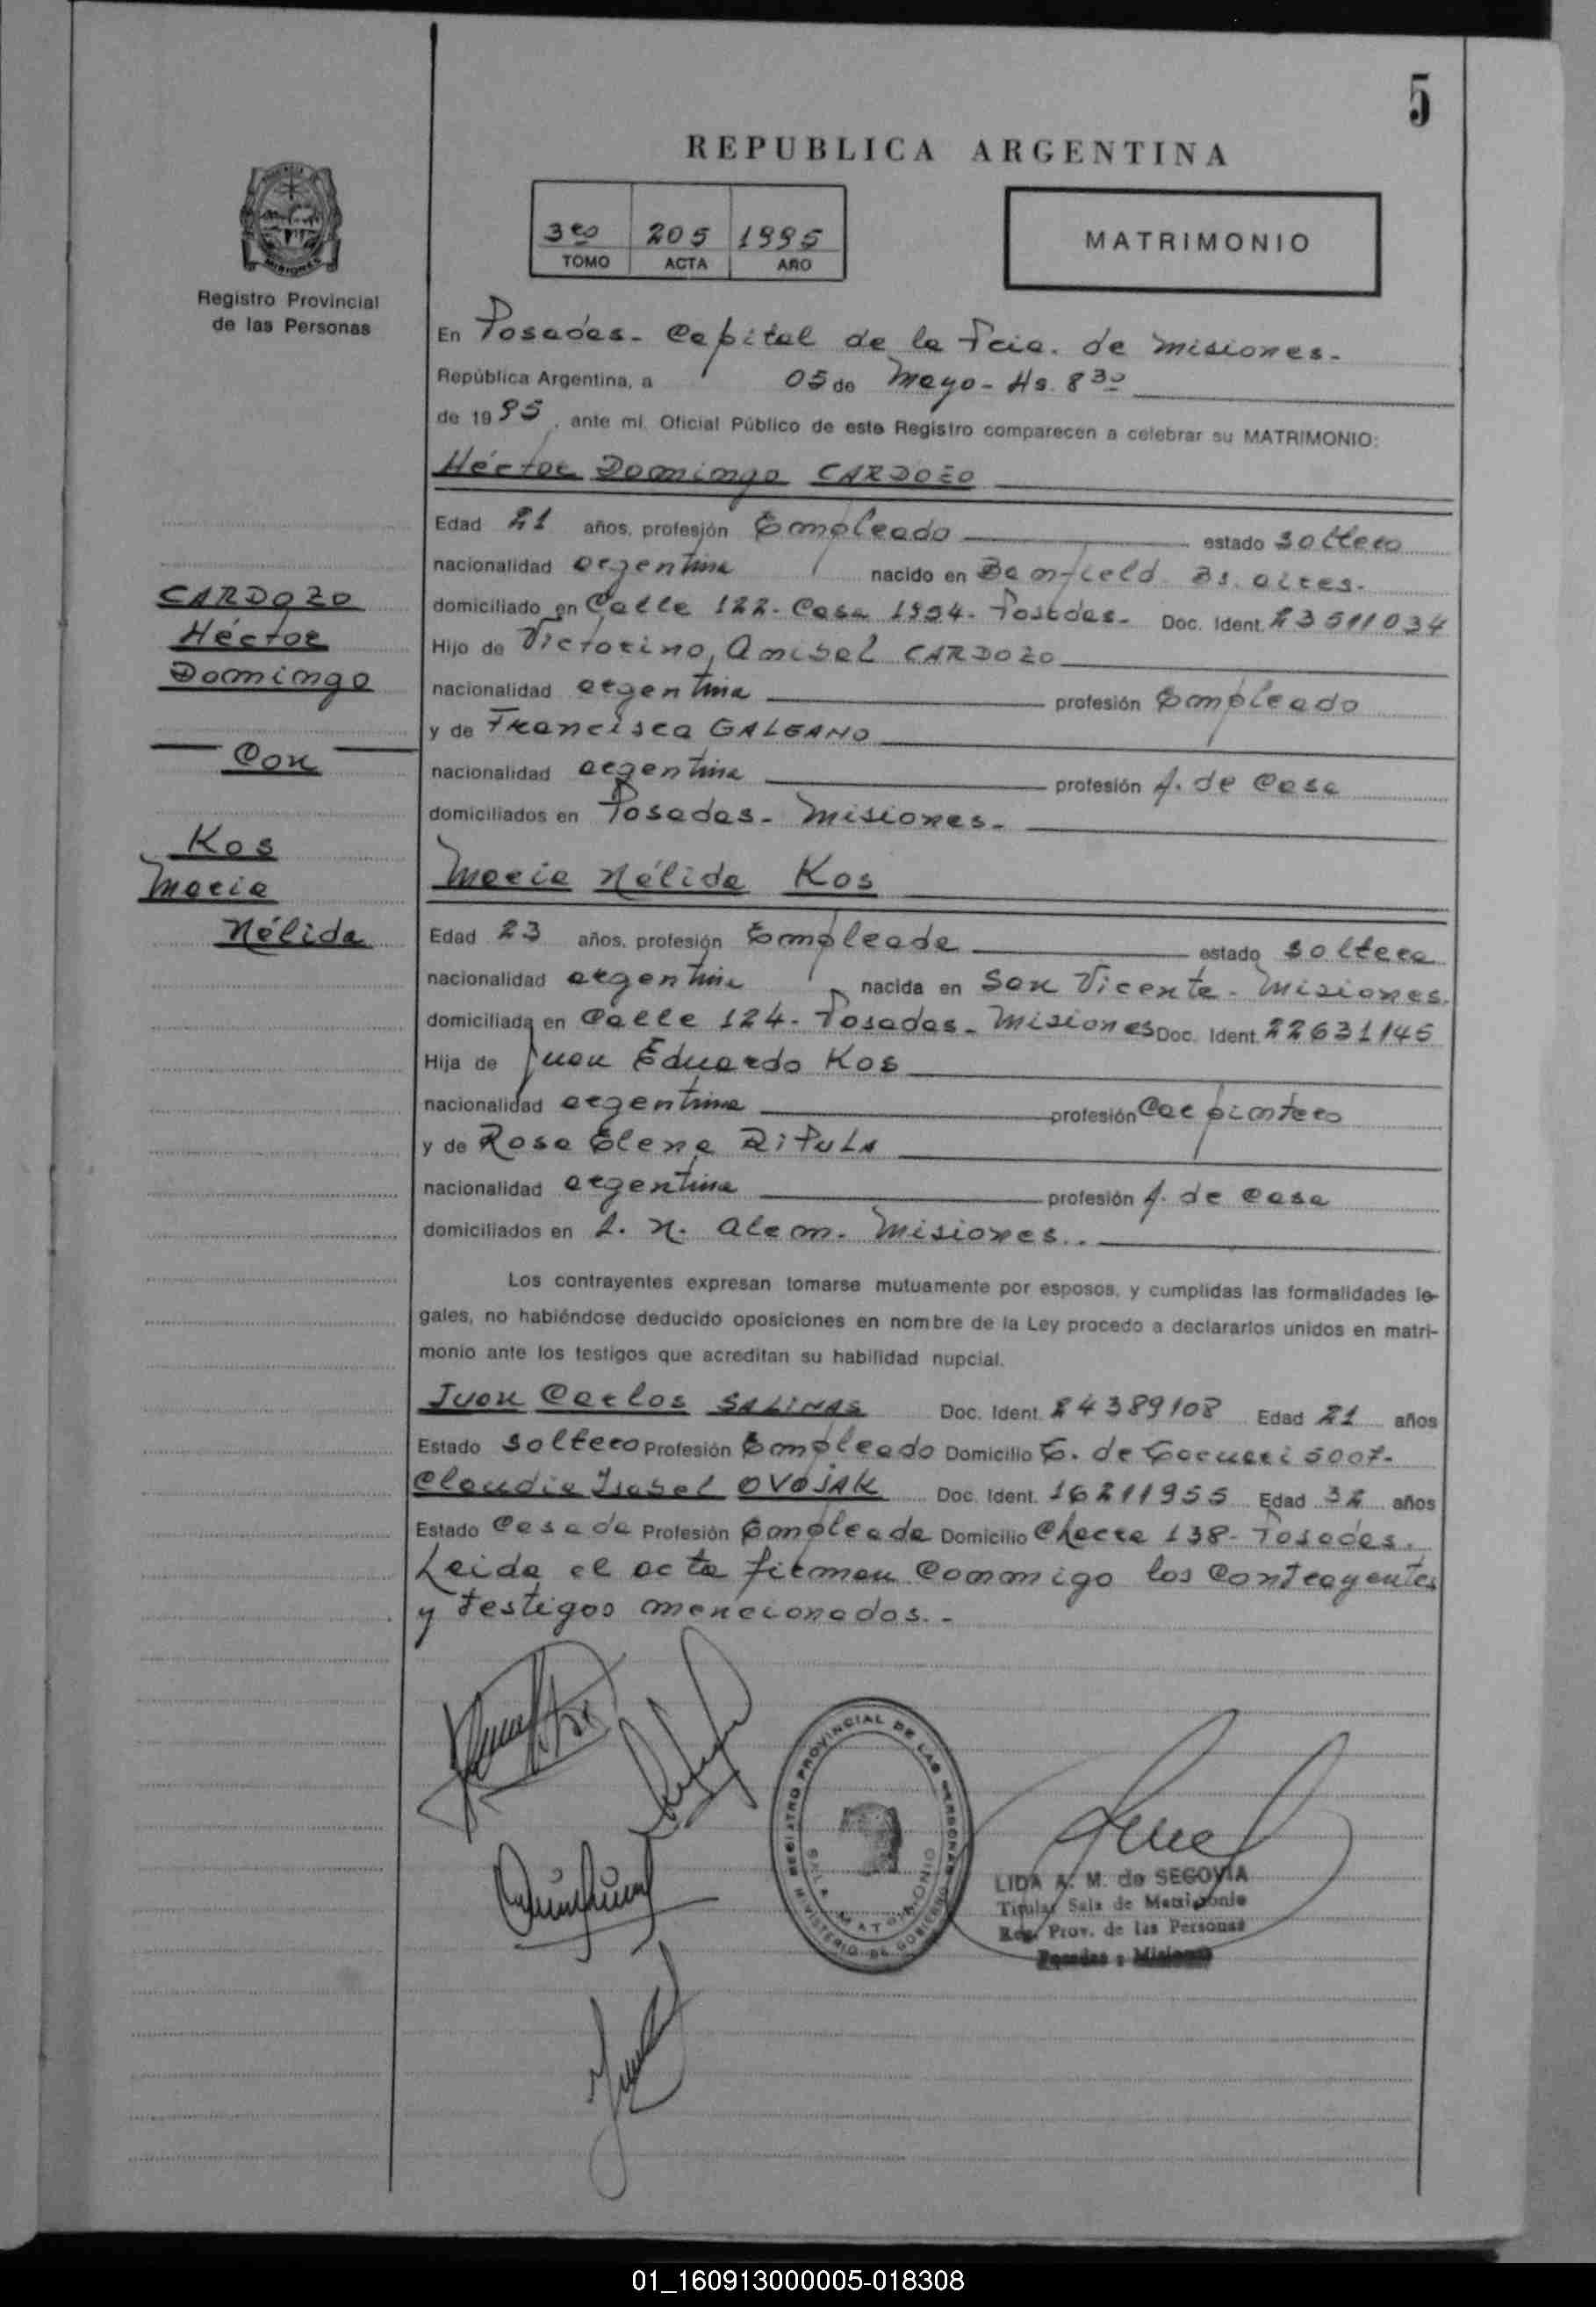 5
REPUBLICA ARGENTINA
3ro 205 1995
TOMO ACTA AÑO
MATRIMONIO
Registro Provincial
de las Personas
En Posadas - Capital de la Pcia. de Misiones -
República Argentina, a 05 de Mayo - Hs. 8 30
de 1995, ante mi, Oficial Público de este Registro comparecen a celebrar su MATRIMONIO:
Héctor Domingo CARDOZO
Edad 21 años, profesión Empleado estado soltero
nacionalidad argentina nacido en Banfield Bs. aires.
domiciliado en Calle 122 - Casa 1954 - Posadas - Doc. Ident. 23511034
Hijo de Victorino, Anibal CARDOZO
nacionalidad argentina profesión Empleado
y de Francisca GALEANO
nacionalidad argentina profesión A. de Casa
domiciliados en Posadas - Misiones -
CARDOZO
Héctor
Domingo
Con
Kos
Maria
Nélida
Maria Nélida Kos
Edad 23 años, profesión Empleada estado soltera
nacionalidad argentina nacida en San Vicente - Misiones.
domiciliada en Calle 124 - Posadas - Misiones Doc. Ident. 22631145
Hija de Juan Eduardo Kos
nacionalidad argentina profesión Carpintero
y de Rosa Elena RIPULA
nacionalidad argentina profesión A. de Casa
domiciliados en L. N. Alem. Misiones..
Los contrayentes expresan tomarse mutuamente por esposos, y cumplidas las formalidades le-
gales, no habiéndose deducido oposiciones en nombre de la Ley procedo a declararlos unidos en matri-
monio ante los testigos que acreditan su habilidad nupcial.
Juan Carlos SALINAS Doc. Ident. 24389108 Edad 21 años
Estado Soltero Profesión Empleado Domicilio de 5007-
Claudia Isabel OVOJAK Doc. Ident. 16211955 Edad 32 años
Estado Casada Profesión Empleada Domicilio Chacra 138 - Posadas.
Leida el acta firman conmigo los Contrayentes
y testigos mencionados. -
REGISTRO PROVINCIAL DE LAS PERSONAS
SALA MATRIMONIO
MINISTERIO DE GOBIERNO
LIDA A. M. de SEGOVIA
Titular Sala de Matrimonio
Reg. Prov. de las Personas
Posadas : Misiones
01_160913000005-018308